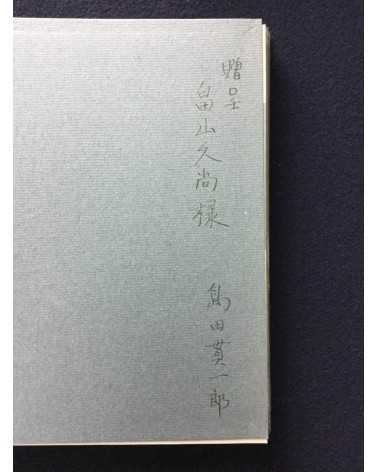 贈呈
畠山久尚様
島田貫一郎